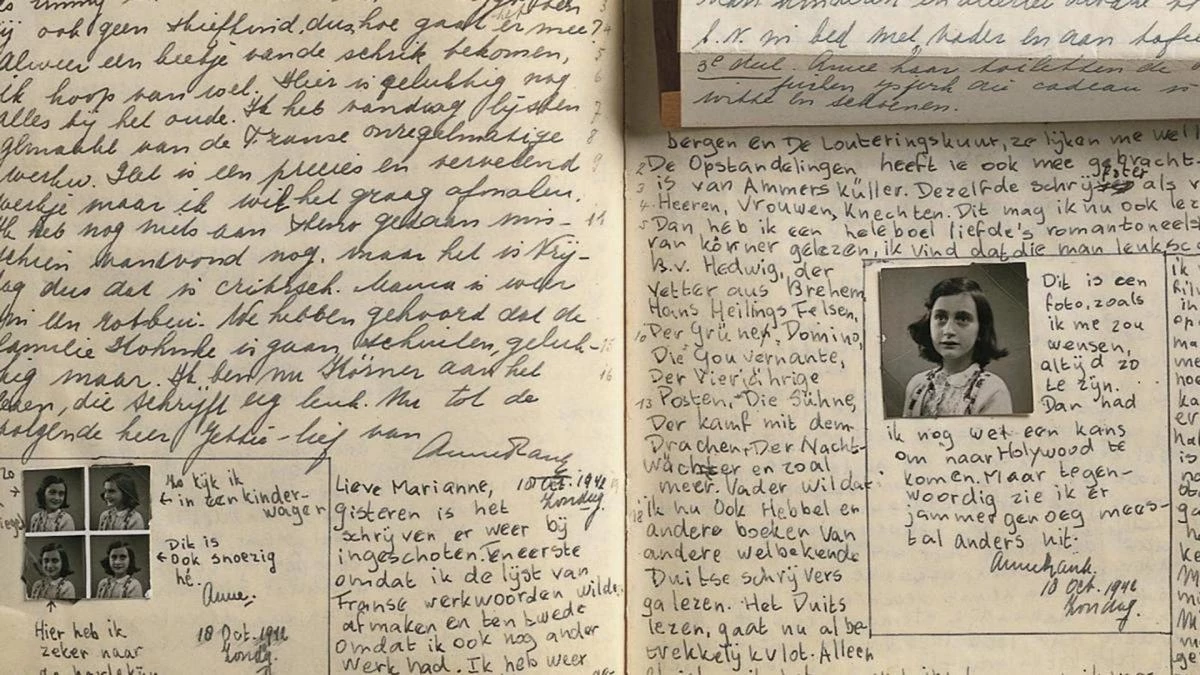 ij ook geen stiefkind, dus hoe gaat er mee?
Alweer een beetje van de schrik bekomen,
ik hoop van wel. Hier is gelukkig nog
alles bij het oude. Ik heb vandaag lijsten
gemaakt van de Franse onregelmatige
werkw. Het is een precies en vervelend
werkje maar ik wil het graag afmaken.
Ik heb nog niets aan Steno gedaan mis-
schien vanavond nog, maar het is Vrij-
dag dus dat is critisch. Mama is weer
We hebben gehoord dat de
familie is gaan schuilen, geluk-
kig maar. Ik ben nu Körner aan het
lezen, die schrijft erg leuk. Nu tot de
volgende keer Jettie-lief van
Anne Frank
Zo kijk ik
in een kinder-
wagen
Dit is
ook snoezig
hé.
Anne.
Hier heb ik
zeker naar
18 Oct. 1942
Zondag.
Lieve Marianne, 18 Oct. 1942
Zondag.
gisteren is het
schrijven er weer bij
ingeschoten. Ten eerste
omdat ik de lijst van
Franse werkwoorden wilde
afmaken en ten twede
omdat ik ook nog ander
werk had. Ik heb weer
b.v. in bed met vader en aan tafel
3e deel. Anne haar toiletten de
die cadeau
witte en schoenen.
bergen en De Louteringskuur, ze lijken me wel
De Opstandelingen heeft ie ook mee gebracht
is van Ammers Küller. Dezelfde schrijfster als v
Heeren, Vrouwen, Knechten. Dit mag ik nu ook lez
Dan heb ik een heleboel liefde's romantoneels
van körner gelezen, ik vind dat die man leuk sc
B.v. Hedwig, der
Vetter aus Brehem
Hans Heilings Felsen,
Der Grüner, Domino,
Die Gouvernante,
Der Vierjährige
Posten, Die Sühne,
Der kamf mit dem
Drachen, Der Nacht-
wächter en zoal
meer. Vader wil dat
ik nu ook Hebbel en
andere boeken van
andere welbekende
Duitse schrijvers
ga lezen. Het Duits
lezen, gaat nu al be-
trekkelijk vlot. Alleen
Dit is een
foto, zoals
ik me zou
wensen,
altijd zo
te zijn.
Dan had
ik nog wel een kans
om naar Holywood te
komen. Maar tegen-
woordig zie ik er
jammer genoeg mees-
tal anders uit.
Anne Frank.
18 Oct. 1942
Zondag.